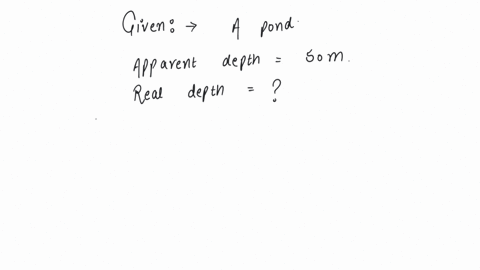 Given: → A pond.
Apparent depth = 50m.
Real depth = ?